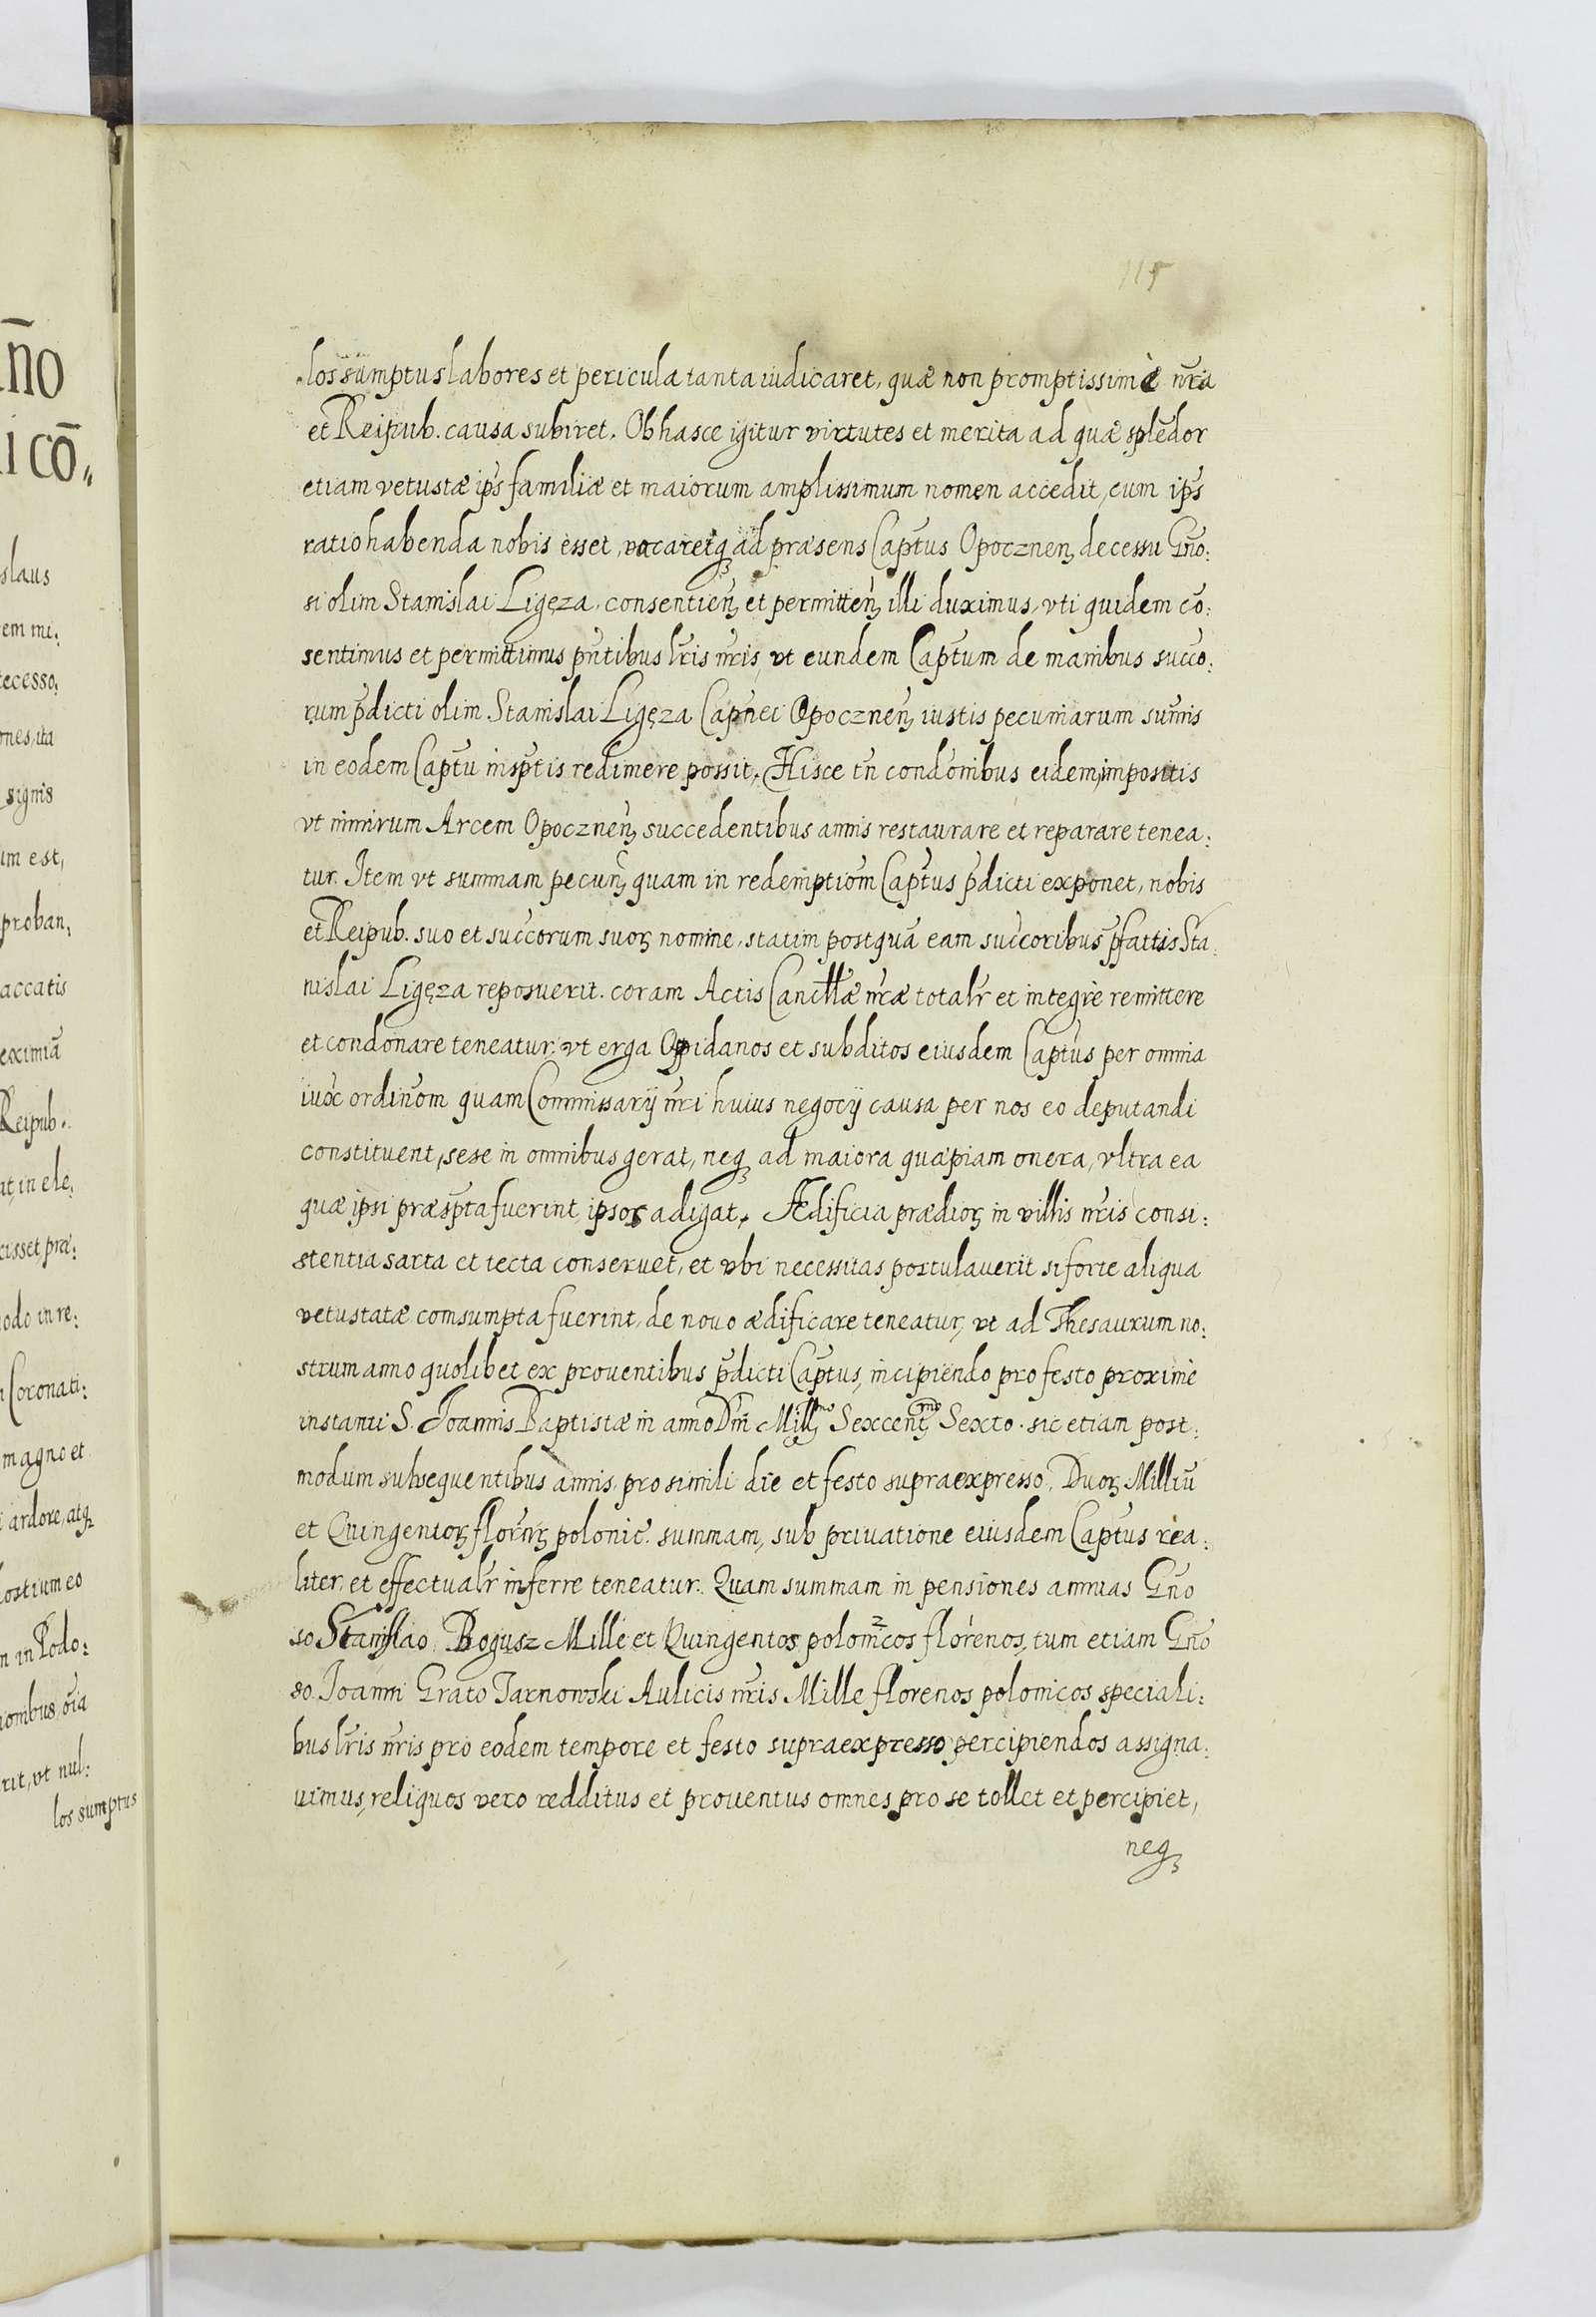 115
los sumptus labores et pericula tanta iudicaret, quæ non promptissimè nr̃a
et Reipub. causa subiret. Ob hasce igitur virtutes et merita ad quæ splẽdor
etiam vetustæ ip̃s familiæ et maiorum amplissimum nomen accedit, cum ip̃s
ratio habenda nobis esset, vacaretq; ad præsens Capt̃us Opocznen̄, decessu Gño:
si olim Stanislai Ligęza, consentien̄, et permitten̄, illi duximus, vti quidem cõ:
sentimus et permittimus pñtibus lr̃is nr̃is, vt eundem Capt̃um de manibus succo:
rum p̃dicti olim Stanislai Ligęza Capñei Opocznen̄, iustis pecuniarum sum̃is
in eodem Capt̃u insp̃tis redimere possit. Hisce tñ condõnibus eidem impositis
vt nimirum Arcem Opocznen̄, succedentibus annis restaurare et reparare tenea:
tur. Item vt summam pecun̄, quam in redemptiõm Capt̃us p̃dicti exponet, nobis
et Reipub. suo et succorum suoꝝ nomine, statim postquã eam succoribus p̃fattis Sta:
nislai Ligęza reposuerit. coram Actis Cancll̃æ nr̃æ totalr̃ et integrè remittere
et condonare teneatur. vt erga Oppidanos et subditos eiusdem Capt̃us per omnia
iux̃ ordinõm quam Commissarij nr̃i huius negocij causa per nos eo deputandi
constituent, sese in omnibus gerat, neq; ad maiora quæpiam onera, vltra ea
quæ ipsi præsp̃ta fuerint, ipsos adigat. Ædificia prædioꝝ in villis nr̃is consi:
stentia sarta et tecta conseruet, et vbi necessitas postulauerit si forte aliqua
vetustatæ comsumpta fuerint, de nouo ædificare teneatur, vt ad Thesaurum no:
strum anno quolibet ex prouentibus p̃dicti Capt̃us, incipiendo pro festo proximè
instanti S. Joannis Baptistæ in anno Dñi Mill̃mo Sexcent̃mo Sexto. sic etiam post:
modum subsequentibus annis, pro simili die et festo supraexpresso, Duoꝝ Milliũ
et Quingentoꝝ florñꝝ polonic̃. summam, sub priuatione eiusdem Capt̃us rea:
liter, et effectualr̃ inferre teneatur. Quam summam in pensiones annuas Gño
so Stanislao Bogusz Mille et Quingentos polonicos florenos, tum etiam Gño
so. Joanni Grato Tarnowski Aulicis nr̃is Mille florenos polonicos speciali:
bus lr̃is nr̃is pro eodem tempore et festo supraexpresso percipiendos assigna:
uimus, reliquos vero redditus et prouentus omnes pro se tollet et percipiet,
neq;